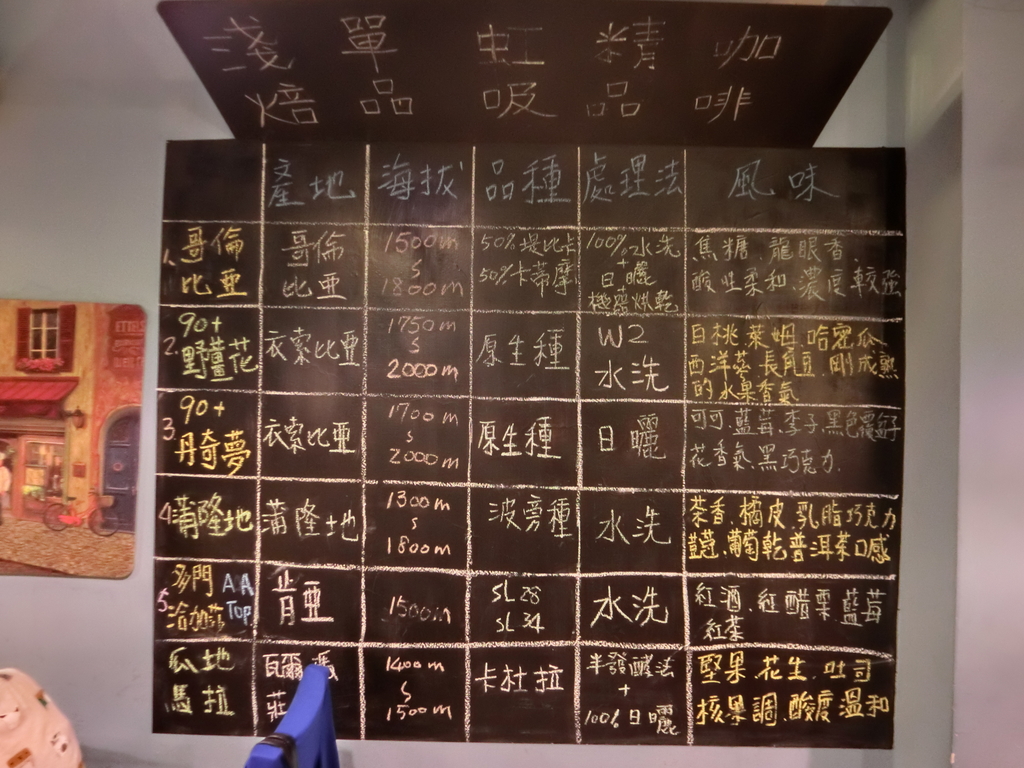 淺焙 單品 虹吸 精品 咖啡
產地 海拔 品種 處理法 風味
1. 哥倫比亞
哥倫比亞
1500m
S
1800m
50% 堤比卡
50% 卡蒂摩
100% 水洗
+
日曬
+
機
烘乾
焦糖、龍眼香、
酸性柔和、濃度較強
2. 90+
野薑花
衣索比亞
1750m
S
2000m
原生種
W2
水洗
白桃、萊姆、哈密瓜
西洋
長角豆、剛成熟
的水果香氣
3. 90+
丹奇夢
衣索比亞
1700m
S
2000m
原生種
日曬
可可、藍莓、李子、黑色覆
子
花香氣、黑巧克力.
4. 蒲隆地
蒲隆地
1300m
S
1800m
波旁種
水洗
茶香、橘皮、乳脂巧克力
荳蔻、葡萄乾、普洱茶口感
5. 多門
洽加莎
AA
Top
肯亞
1500m
SL28
SL34
水洗
紅酒、紅醋栗、藍莓
紅茶
瓜地
馬拉
瓦爾
莊
1400m
S
1500m
卡杜拉
半發酵法
+
100% 日曬
堅果、花生、吐司
核果調、酸度溫和